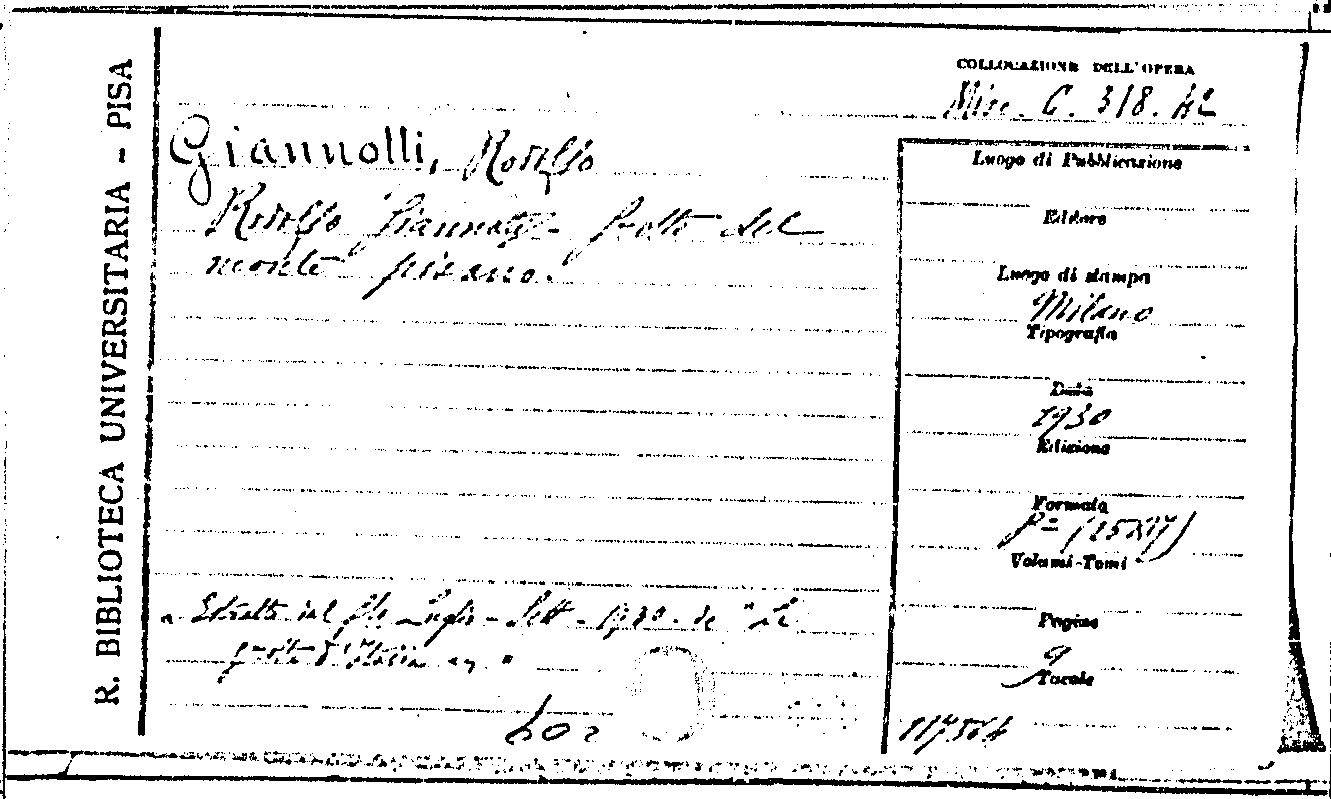 R. BIBLIOTECA UNIVERSITARIA - PISA
COLLOCAZIONE DELL'OPERA
Misc. C. 318. 42
Giannolli, Rodolfo
Rodolfo Giannotti - Grotte del
monte pisano.
Luogo di Pubblicazione
Editore
Luogo di stampa
Milano
Tipografia
Data
1930
Edizione
Formato
8= (25x17)
Volumi-Tomi
Pagine
9
Tavole
Estratto dal Luglio - Sett - 1930 - de "Le
grotte d'Italia"
117564